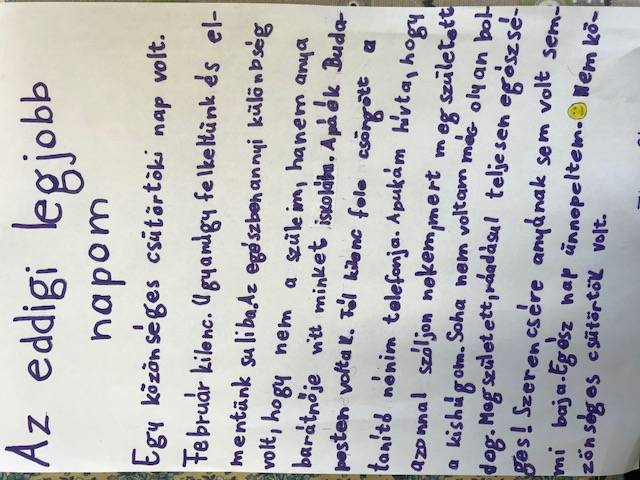 Az eddigi legjobb
napom
Egy közönséges csütörtöki nap volt.
Február kilenc. Ugyanúgy felkeltünk és el-
mentünk suliba. Az egészben annyi különbség
volt, hogy nem a szüleim, hanem anya
barátnője vitt minket iskolába. Apáék Buda-
posten voltak. Fél kilenc fele csöngött a
tanító nénim telefonja. Apukám hívta, hogy
azonnal szóljon nekem, mert megszületett
a kishúgom. Soha nem voltam még olyan bol-
dog. Megszületett, ráadásul teljesen egészsé-
ges! Szerencsére anyának sem volt sem-
mi baja. Egész nap ünnepeltem. 🙂 Nem kö-
zönséges csütörtök volt.